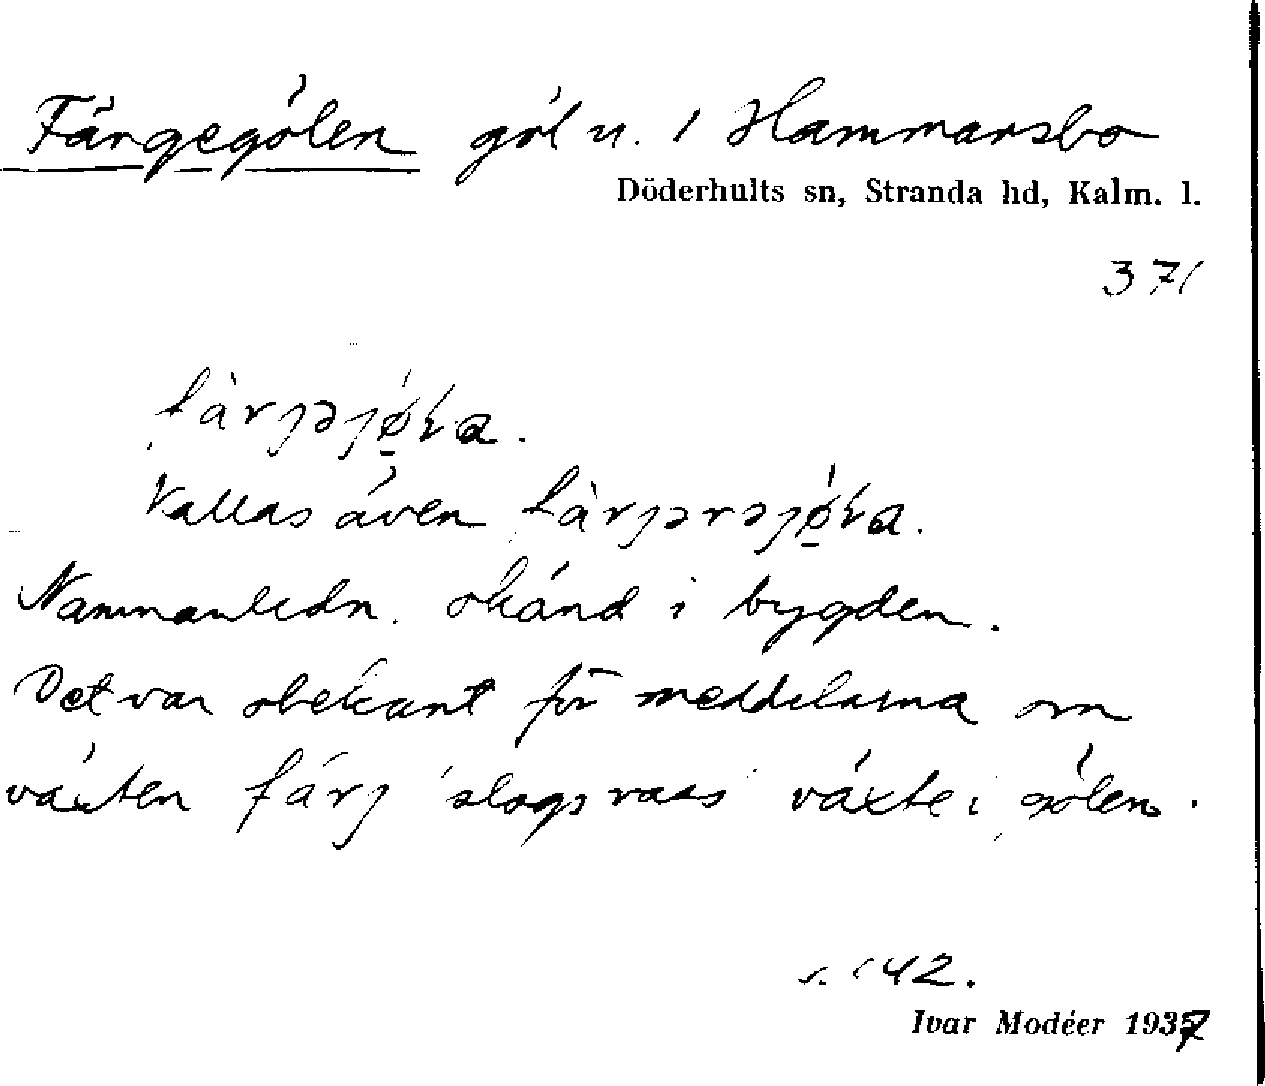 Färgegölen göl u. 1 Hammarsbo
Döderhults sn, Stranda hd, Kalm. l.
371
fàrjəjǿ̠ɽa.
Kallas även fàrjərəjǿ̠ɽa.
Namnanledn. okänd i bygden.
Det var obekant för meddelarna om
växten färj 'slags vass' växte i gölen.
s. 142.
Ivar Modéer 1937